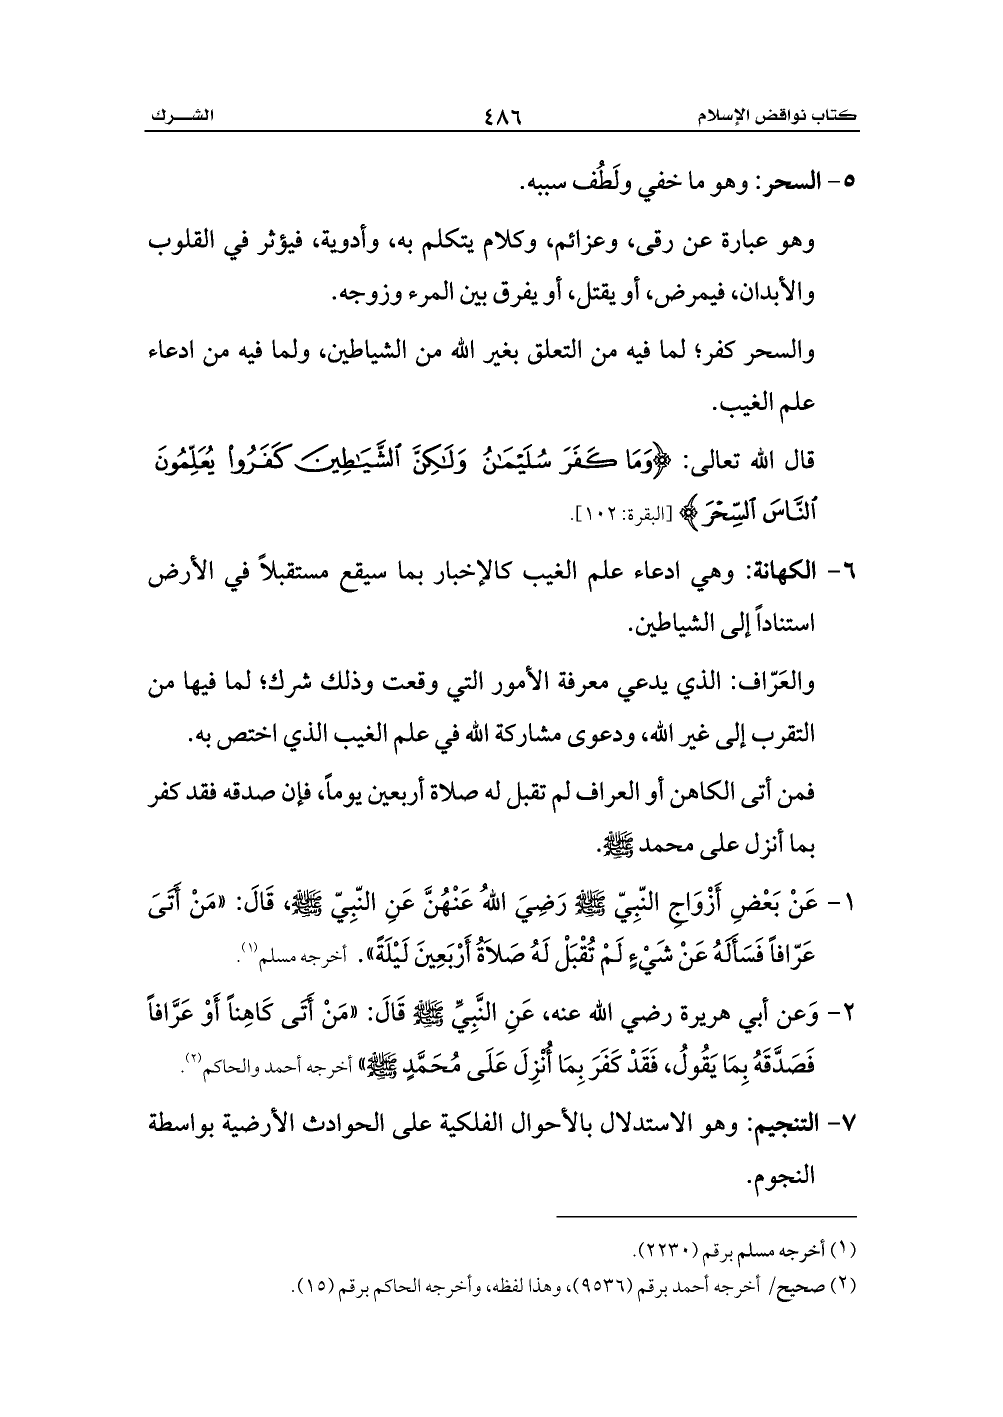 كتاب نواقض الإسلام ٤٨٦ الشـــرك
٥- السحر: وهو ما خفي ولَطُف سببه.
وهو عبارة عن رقى، وعزائم، وكلام يتكلم به، وأدوية، فيؤثر في القلوب
والأبدان، فيمرض، أو يقتل، أو يفرق بين المرء وزوجه.
والسحر كفر؛ لما فيه من التعلق بغير الله من الشياطين، ولما فيه من ادعاء
علم الغيب.
قال الله تعالى: ﴿وَمَا كَفَرَ سُلَيْمَٰنُ وَلَٰكِنَّ ٱلشَّيَٰطِينَ كَفَرُوا۟ يُعَلِّمُونَ
ٱلنَّاسَ ٱلسِّحْرَ﴾ [البقرة: ١٠٢].
٦- الكهانة: وهي ادعاء علم الغيب كالإخبار بما سيقع مستقبلاً في الأرض
استناداً إلى الشياطين.
والعَرّاف: الذي يدعي معرفة الأمور التي وقعت وذلك شرك؛ لما فيها من
التقرب إلى غير الله، ودعوى مشاركة الله في علم الغيب الذي اختص به.
فمن أتى الكاهن أو العراف لم تقبل له صلاة أربعين يوماً، فإن صدقه فقد كفر
بما أنزل على محمد ﷺ.
١- عَنْ بَعْضِ أَزْوَاجِ النّبِيّ ﷺ رَضِيَ اللهُ عَنْهُنَّ عَنِ النّبِيّ ﷺ، قَالَ: «مَنْ أَتَىَ
عَرّافاً فَسَأَلَهُ عَنْ شَيْءٍ لَمْ تُقْبَلْ لَهُ صَلاَةُ أَرْبَعِينَ لَيْلَةً». أخرجه مسلم(١).
٢- وَعن أبي هريرة رضي الله عنه، عَنِ النَّبِيِّ ﷺ قَالَ: «مَنْ أَتَى كَاهِناً أَوْ عَرَّافاً
فَصَدَّقَهُ بِمَا يَقُولُ، فَقَدْ كَفَرَ بِمَا أُنْزِلَ عَلَى مُحَمَّدٍ ﷺ» أخرجه أحمد والحاكم(٢).
٧- التنجيم: وهو الاستدلال بالأحوال الفلكية على الحوادث الأرضية بواسطة
النجوم.
(١) أخرجه مسلم برقم (٢٢٣٠).
(٢) صحيح/ أخرجه أحمد برقم (٩٥٣٦)، وهذا لفظه، وأخرجه الحاكم برقم (١٥).